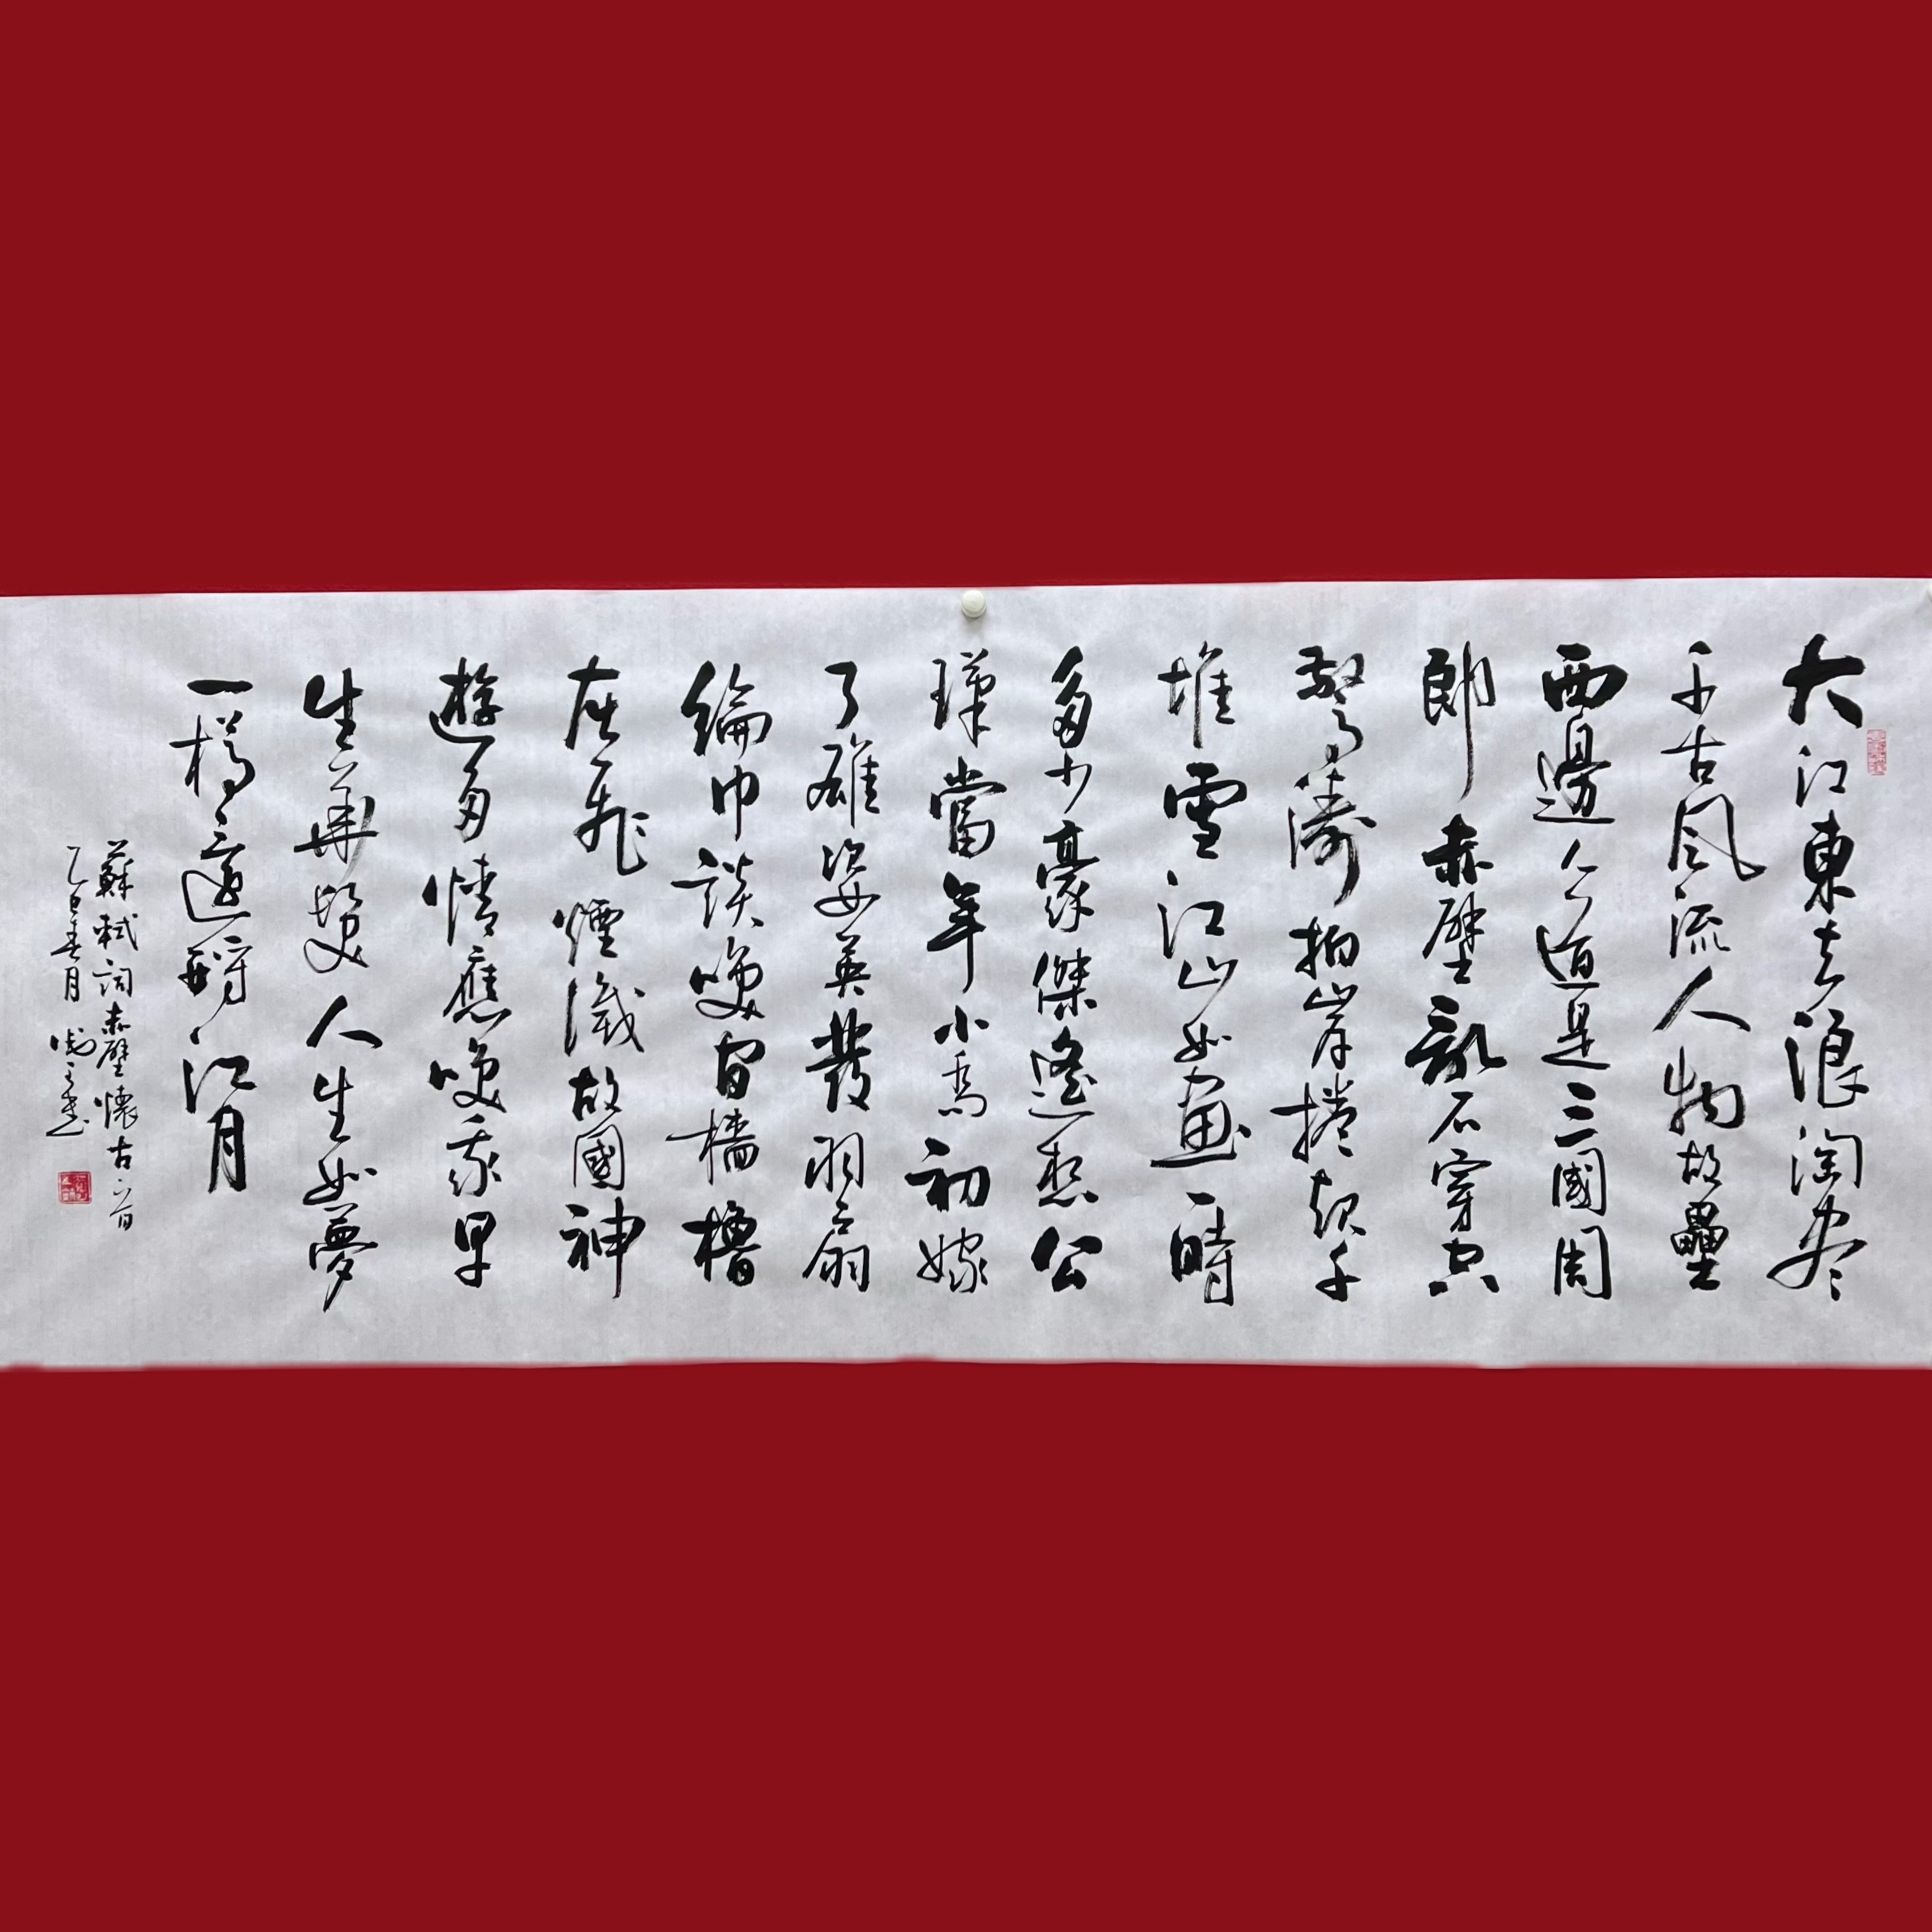 大江東去浪淘盡
千古風流人物故壘
西邊人道是三國周
郎赤壁亂石穿空
驚濤拍岸捲起千
堆雪江山如畫一時
多少豪傑遙想公
瑾當年小喬初嫁
了雄姿英發羽扇
綸巾談笑間檣櫓
灰飛煙滅故國神
遊多情應笑我早
生華髮人生如夢
一樽還酹江月
蘇軾詞赤壁懷古一首
乙巳春月